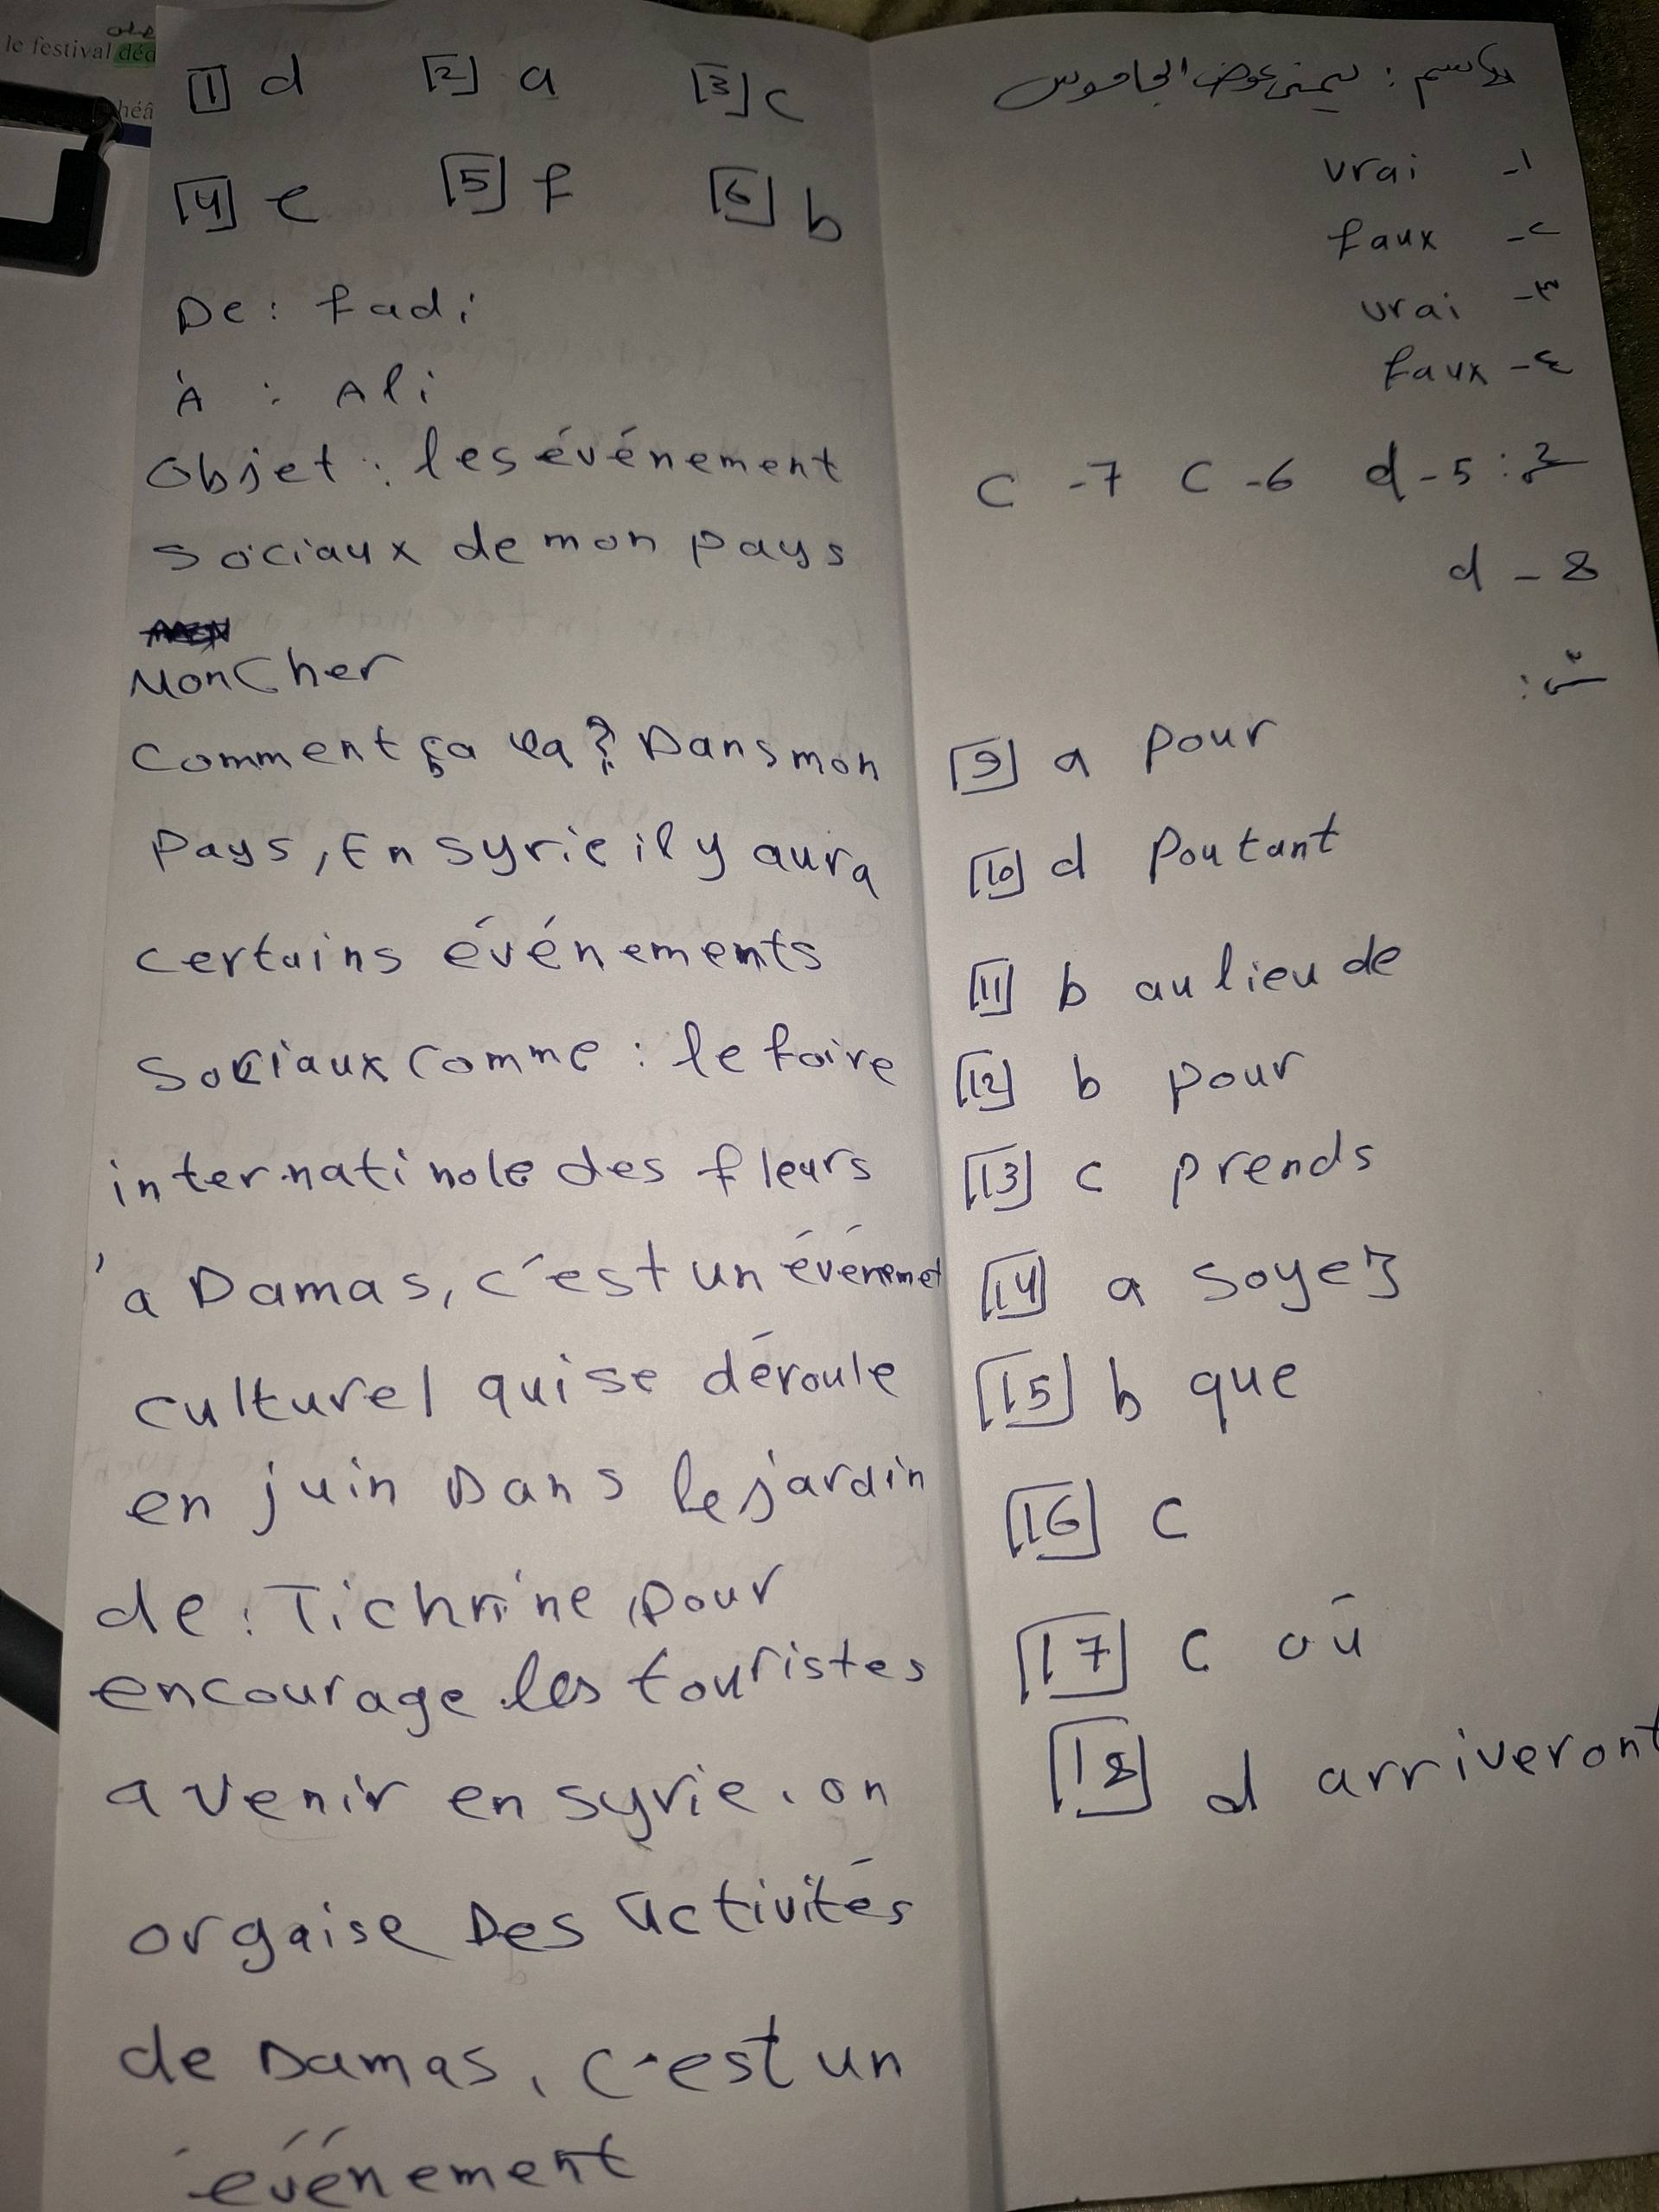 le festival déd
héâ
الاسم : يمنى عوض الجاموس
١- vrai
٢- faux
٣- vrai
٤- faux
2 : 5 - d 6 - c 7 - c
8 - d
:
9 a pour
10 d Poutant
11 b au lieu de
12 b pour
13 c prends
14 a soyez
15 b que
16 c
17 c où
18 d arriveront
1 d 2 a 3 c
4 e 5 f 6 b
De : fadi
À : Ali
Objet : les événement
sociaux de mon pays
Mon Cher
Comment ça va ? Dans mon
Pays, En syrie il y aura
certains événements
sociaux comme : le foire
internatinole des fleurs
à Damas, c'est un événemet
culturel qui se déroule
en juin Dans le jardin
de : Tichrine, pour
encourage les touristes
a venir en syrie. on
orgaise Des activités
de Damas, c'est un
événement